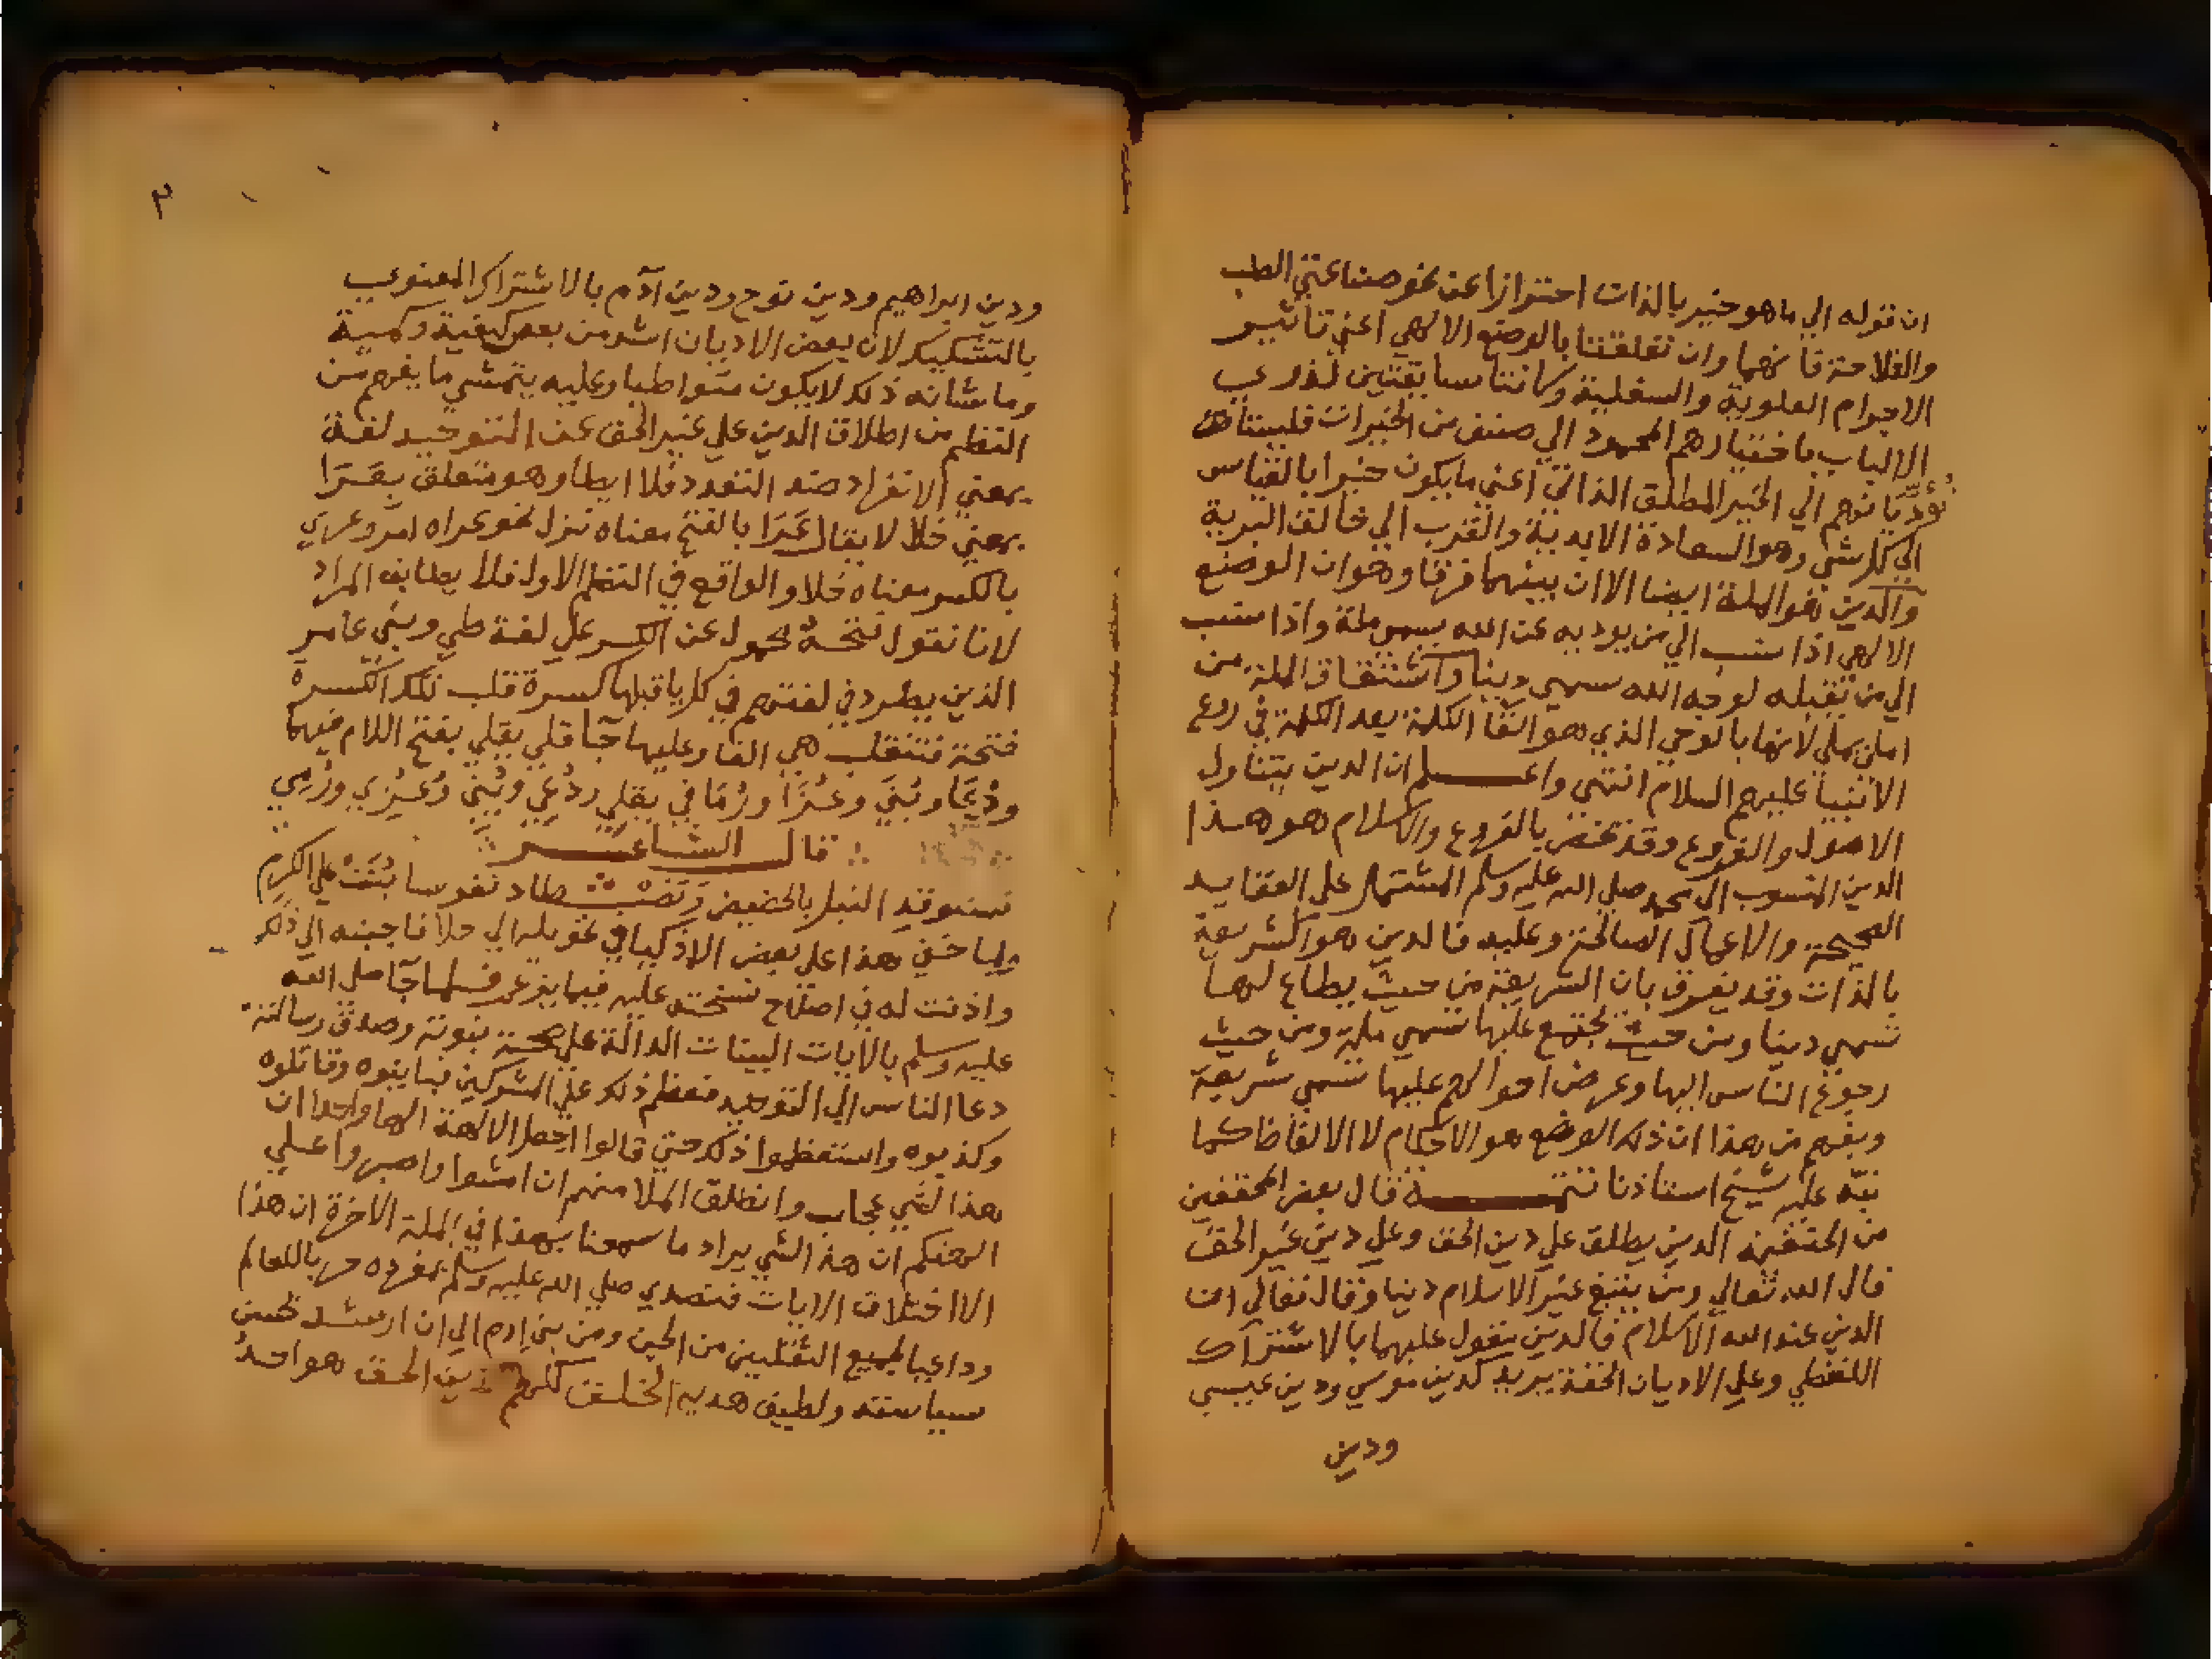 ان قوله الي ما هو خير بالذات احترازا عن نحو صناعتي الطب
والفلاحة فانهما وان تعلقتا بالوضع الالهي اعني تاثير
الاجرام العلوية والسفلية وكانتا سابقتين لذوي
الالباب باختيارهم المحمود الي صنف من الخيرات فليستا
تؤديانهم الي الخير المطلق الذاتي اعني ما يكون خيرا بالقياس
الي كل شي وهو السعادة الابدية والقرب الي خالق البرية
والدين نحو الملة ايضا الا ان بينهما فرقا وهو ان الوضع
الالهي اذا نسب الي من يوديه عن الله يسمي ملة واذا نسب
الي من تقبله لوجه الله سمي دينا واشتقاق الملة من
املي يملي لانها بالوحي الذي هو القا الكلمة بعد الكلمة في روع
الانبيا عليهم السلام انتهي واعلم ان الدين يتناول
الاصول والفروع وقد يختص بالفروع والاسلام هو هذا
الدين المنسوب الي محمد صلي الله عليه وسلم المشتمل علي العقايد
الصحيحة والاعمال الصالحة وعليه فالدين هو الشريعة
بالذات وقد يفرق بان الشريعة من حيث يطاع لها
تسمي دينا ومن حيث يجتمع عليها تسمي ملة ومن حيث
رجوع الناس اليها وعرض احوالهم عليها تسمي شريعة
ويفهم من هذا ان ذلك الوضع هو الاحكام لا الالفاظ كما
نبه عليه شيخ استاذنا تتمة قال بعض المحققين
من الحنفية الدين يطلق علي دين الحق وعلي دين غير الحق
قال الله تعالي ومن يبتغ غير الاسلام دينا وقال تعالي ان
الدين عند الله الاسلام فالدين يقول عليهما بالاشتراك
اللفظي وعلي الاديان الحقة يريد كدين موسي ودين عيسي
ودين
٣
ودين ابراهيم ودين نوح ودين آدم بالاشتراك المعنوي
بالتشكيك لان بعض الاديان اشد من بعض كيفية وكمية
وما شانه ذلك لا يكون متواطيا وعليه يتمشي ما يفهم من
النظم من اطلاق الدين علي غير الحق عن التوحيد لغة
بمعني الانفراد ضد التعدد فلا ايطا وهو متعلق بعرا
بمعني خلا لا يقال عرا بالفتح معناه نزل نحو عراه امر وعري
بالكسر معناه خلا والواقع في النظم الاول فلا يطابق المراد
لانا نقول فتحة محمول عن الكسر علي لغة طي وبني عامر
الذين يطرد في لغتهم في كل يا قبلها كسرة قلب تلك الكسرة
فتحة فتنقلب هي الفا وعليها جآ قلي يقلي بفتح اللام فيهما
ودعا وبني وعزا ورما في يقلي ودعي وبني وعزي ورمي
قال الشاعر
نستوقد النبل بالحضيض ونصطاد نفوسا بنت علي الكرم
ولما خفي هذا علي بعض الاذكيا في تحويله الي خلا فاجبته الي ذلك
واذنت له في اصلاح نسخته عليه فيما يزعم فلما جآ صلي الله
عليه وسلم بالايات البينات الدالة علي صحة نبوته وصدق رسالته
دعا الناس الي التوحيد فعظم ذلك علي المشركين فباينوه وقاتلوه
وكذبوه واستعظموا ذلك حتي قالوا اجعل الالهة الها واحدا ان
هذا لشي عجاب وانطلق الملا منهم ان امشوا واصبروا علي
الهتكم ان هذا لشي يراد ما سمعنا بهذا في الملة الاخرة ان هذا
الا اختلاق الايات فتصدي صلي الله عليه وسلم بمفرده حربا للعالم
وداعيا لجميع الثقلين من الجن ومن بني ادم الي ان ارشد بحسن
سياسته ولطيف هديه الخلق كلهم لدين الحق هو احد